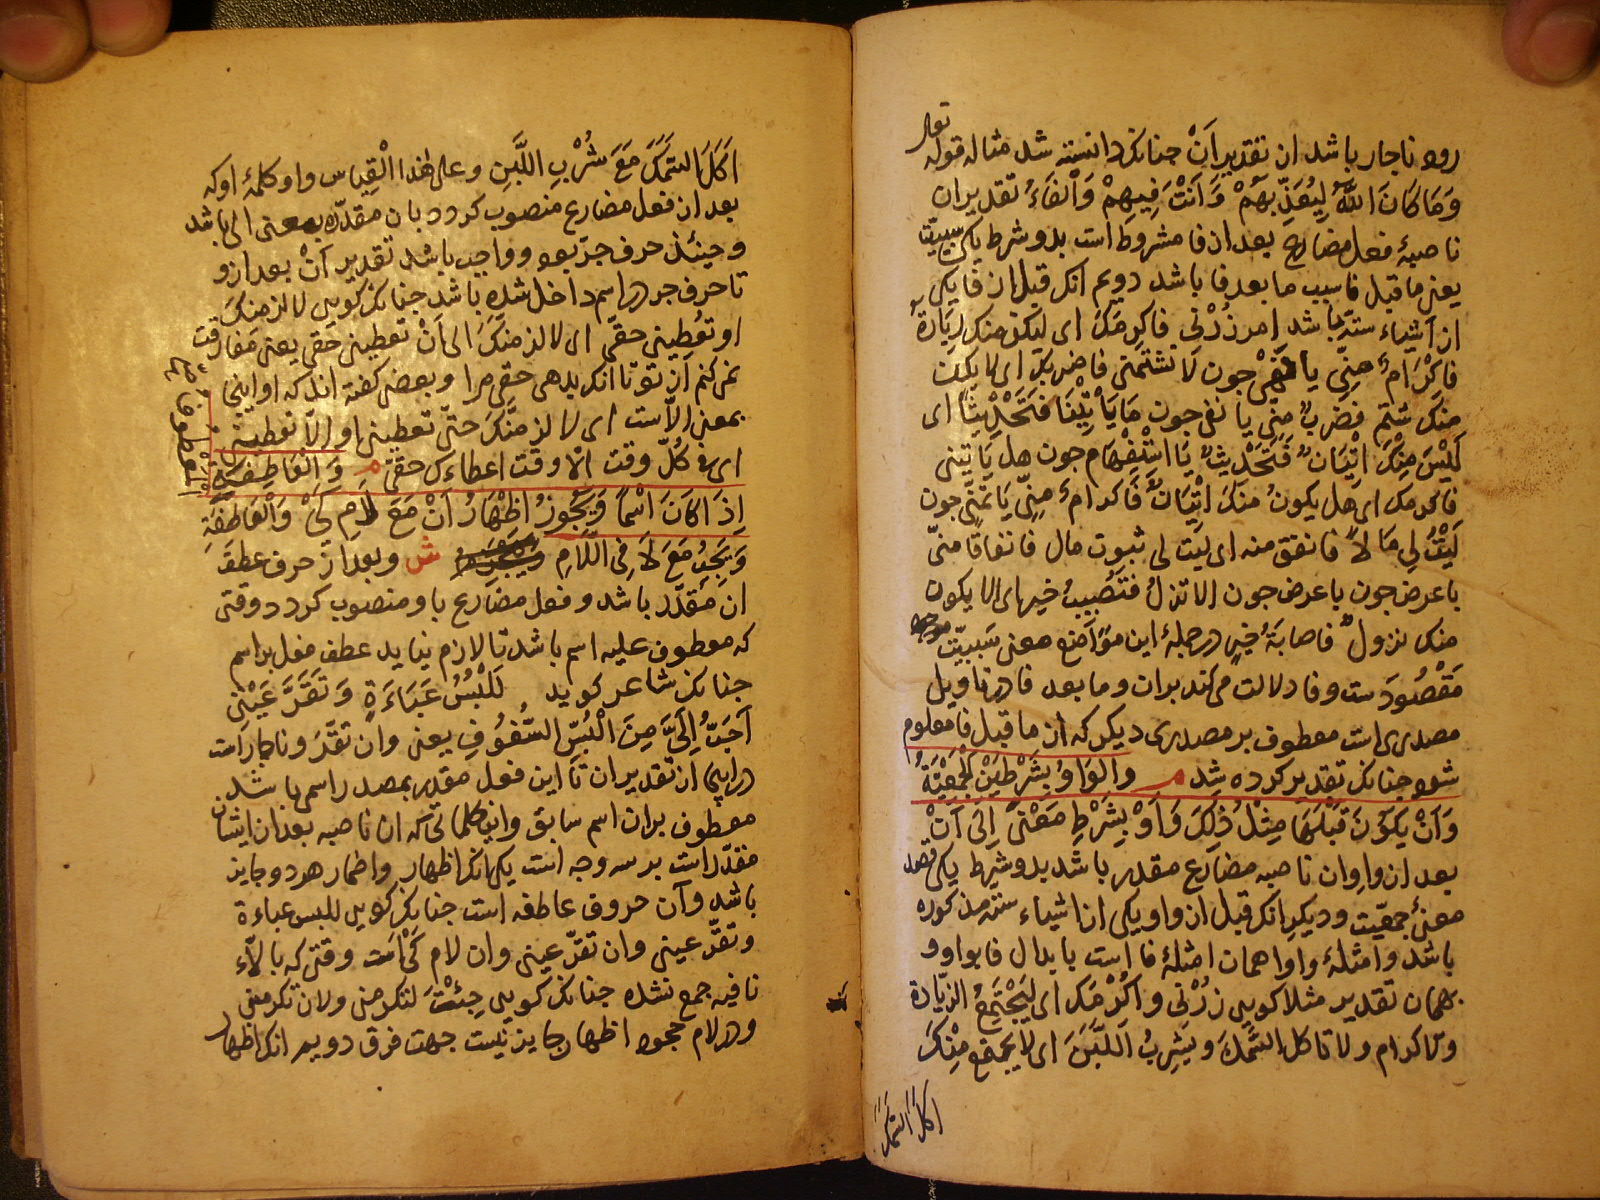 رود ناچار باشد از تقدیر اَنْ جنانکه دانسته شد مثاله قوله تعا
وَمَا كَانَ اللّٰهُ لِيُعَذِّبَهُمْ وَاَنْتَ فِيهِمْ وَالْفَاءُ تقدیر ان
ناصبهٔ فعل مضارع بعد از فا مشروط است بدو شرط یکی سببیّت
یعنی ما قبل فا سبب ما بعد فا باشد دویم انکه قبل از فا یکی
از اشیاء ستّه باشد امر زُرْنی فاکرمَکَ ای لیکن منک زِیَارَةٌ
فَاکْرَامٌ مِنِّی یا نهی جون لَا تَشْتِمْنی فاضربَکَ ای لا یکن
منکَ شتم فضربٌ منی یا نفی جون مَا یَأْتِیْنَا فَتُحَدِّثَنَا ای
لَیْسَ مِنْکَ اِتْیَانٌ فَتَحْدِیثٌ یَا اسْتِفْهَام جون هل یَأتینی
فاکرمک ای هل یکونُ منکَ اِتْیَانٌ فَاکرامٌ مِنِّی یَا تمنّی جون
لَیْتَ لِی مَالاً فانفق منه ای لیت لی ثبوت مال فانفاقًا منّی
یا عرض جون یا عرض جون الا تنزلُ فتصیبَ خیرا ای الا یکون
منک نزولٌ فاصابَةُ خیرٍ در جملهٔ این مواضع معنی سببیّت
مَقْصُود ست و فا دلالت می کند بران و ما بعد فا در تاویل
مصدری است معطوف بر مصدری دیگر که از ما قبل فا معلوم
شود جنانکه تقدیر کرده شد م والوَاوُ بشَرْطَیْنِ الْجَمْعِیَّةُ
وَاَنْ یَکُونَ قَبْلَهَا مِثْلُ ذٰلِکَ وَاَوْ بِشَرْطِ مَعْنَی اِلٰی اَنْ
بعد از واو ان ناصبه مضارع مقدر باشد بدو شرط یکی قصد
معنیٔ جمعیّت و دیکر انکه قبل از واو یکی از اشیاء ستّه مذکوره
باشد و امثلهٔ واو همان امثلهٔ فا است بابدال فا بواو و
بهمان تقدیر مثلا کویی زُرْنی و اکْرْمَک ای لیَجْتَمِعُ الزّیَارة
والاکرام و لا تاکل السَّمَکَ و تَشْرِبُ اللَّبَنَ ای لا یجتمع مِنْکَ
اکل السّمک
اَکَلَ السَّمَکَ مَعَ شُرْبِ اللَّبَنِ و علی هٰذا الْقِیاس واو کلمهٔ او که
بعد از فعل مضارع منصوب کردد بان مقدّره بمعنی الی باشد
و حینئذ حرف جرّ بود و واجب باشد تقدیر اَنْ بعد از و
تا حرف جر در اسم داخل شده باشد جنانکه کویی لالزمنکَ
او تعُطِینی حقّی ای لالزمنکَ الی اَنْ تعطینی حَقی یعنی مفارقت
نمی کنم از تو تا انکه بدهی حقِ مرا و بعضی کفته اند که او اینجا
بمعنی الّا ست ای لالزمنَّکَ حتّی تعطینی او الّا تعطینی
ای فی کُلّ وقت الّا وقت اعطاءک حقی م وَالْعَاطِفَةُ
اِذَا کَانَ اسْمًا وَیَجُوزُ اظْهَارُ اَنْ مَعَ لَامِ کَیْ وَالْعَاطِفَةِ
وَیَجِبُ مَعَ لَا فِی اللّامِ ش و بعد از حرف عطف
ان مقدّر باشد و فعل مضارع باو منصوب کردد وقتی
که معطوف علیه اسم باشد تا لازم نیاید عطف فعل بر اسم
جنانکه شاعر کوید لَلُبْسُ عَبَاءَةٍ وَتَقَرَّ عَیْنی
اَحَبُّ اِلَیَّ مِنَ الْبُسِ الشُّفُوفِ یعنی وان تقَرَّ و ناجار است
در اینجا از تقدیر ان تا این فعل مقدر بمصدر اسم باشد
معطوف بران اسم سابق و این کلماتی که ان ناصبه بعد از ایشان
مقدّر است بر سه وجه است یکی انکه اظهار و اضمار هر دو جایز
باشد و آن حروف عاطفه است جنانکه کویی للبس عباءة
و تقرّ عینی وان تقرّ عینی و ان لام کَیْ است وقتی که بالاّء
نافیه جمع نشده جنانکه کویی جِئْتُ لتکرمنی ولان تکرمنی
و در لام جحود اظهار جایز نیست جهت فرق دویم انکه اظهار